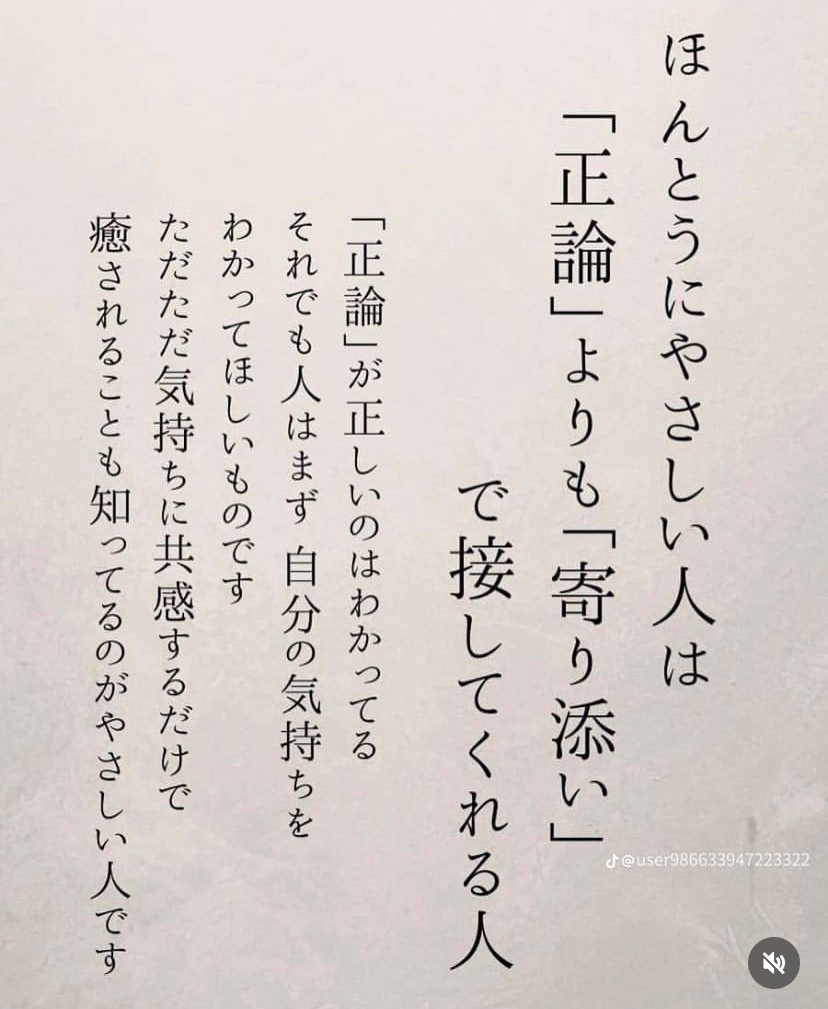 ほんとうにやさしい人は
「正論」よりも「寄り添い」
で接してくれる人
「正論」が正しいのはわかってる
それでも人はまず 自分の気持ちを
わかってほしいものです
ただただ気持ちに共感するだけで
癒されることも知ってるのがやさしい人です
@user986633947223322